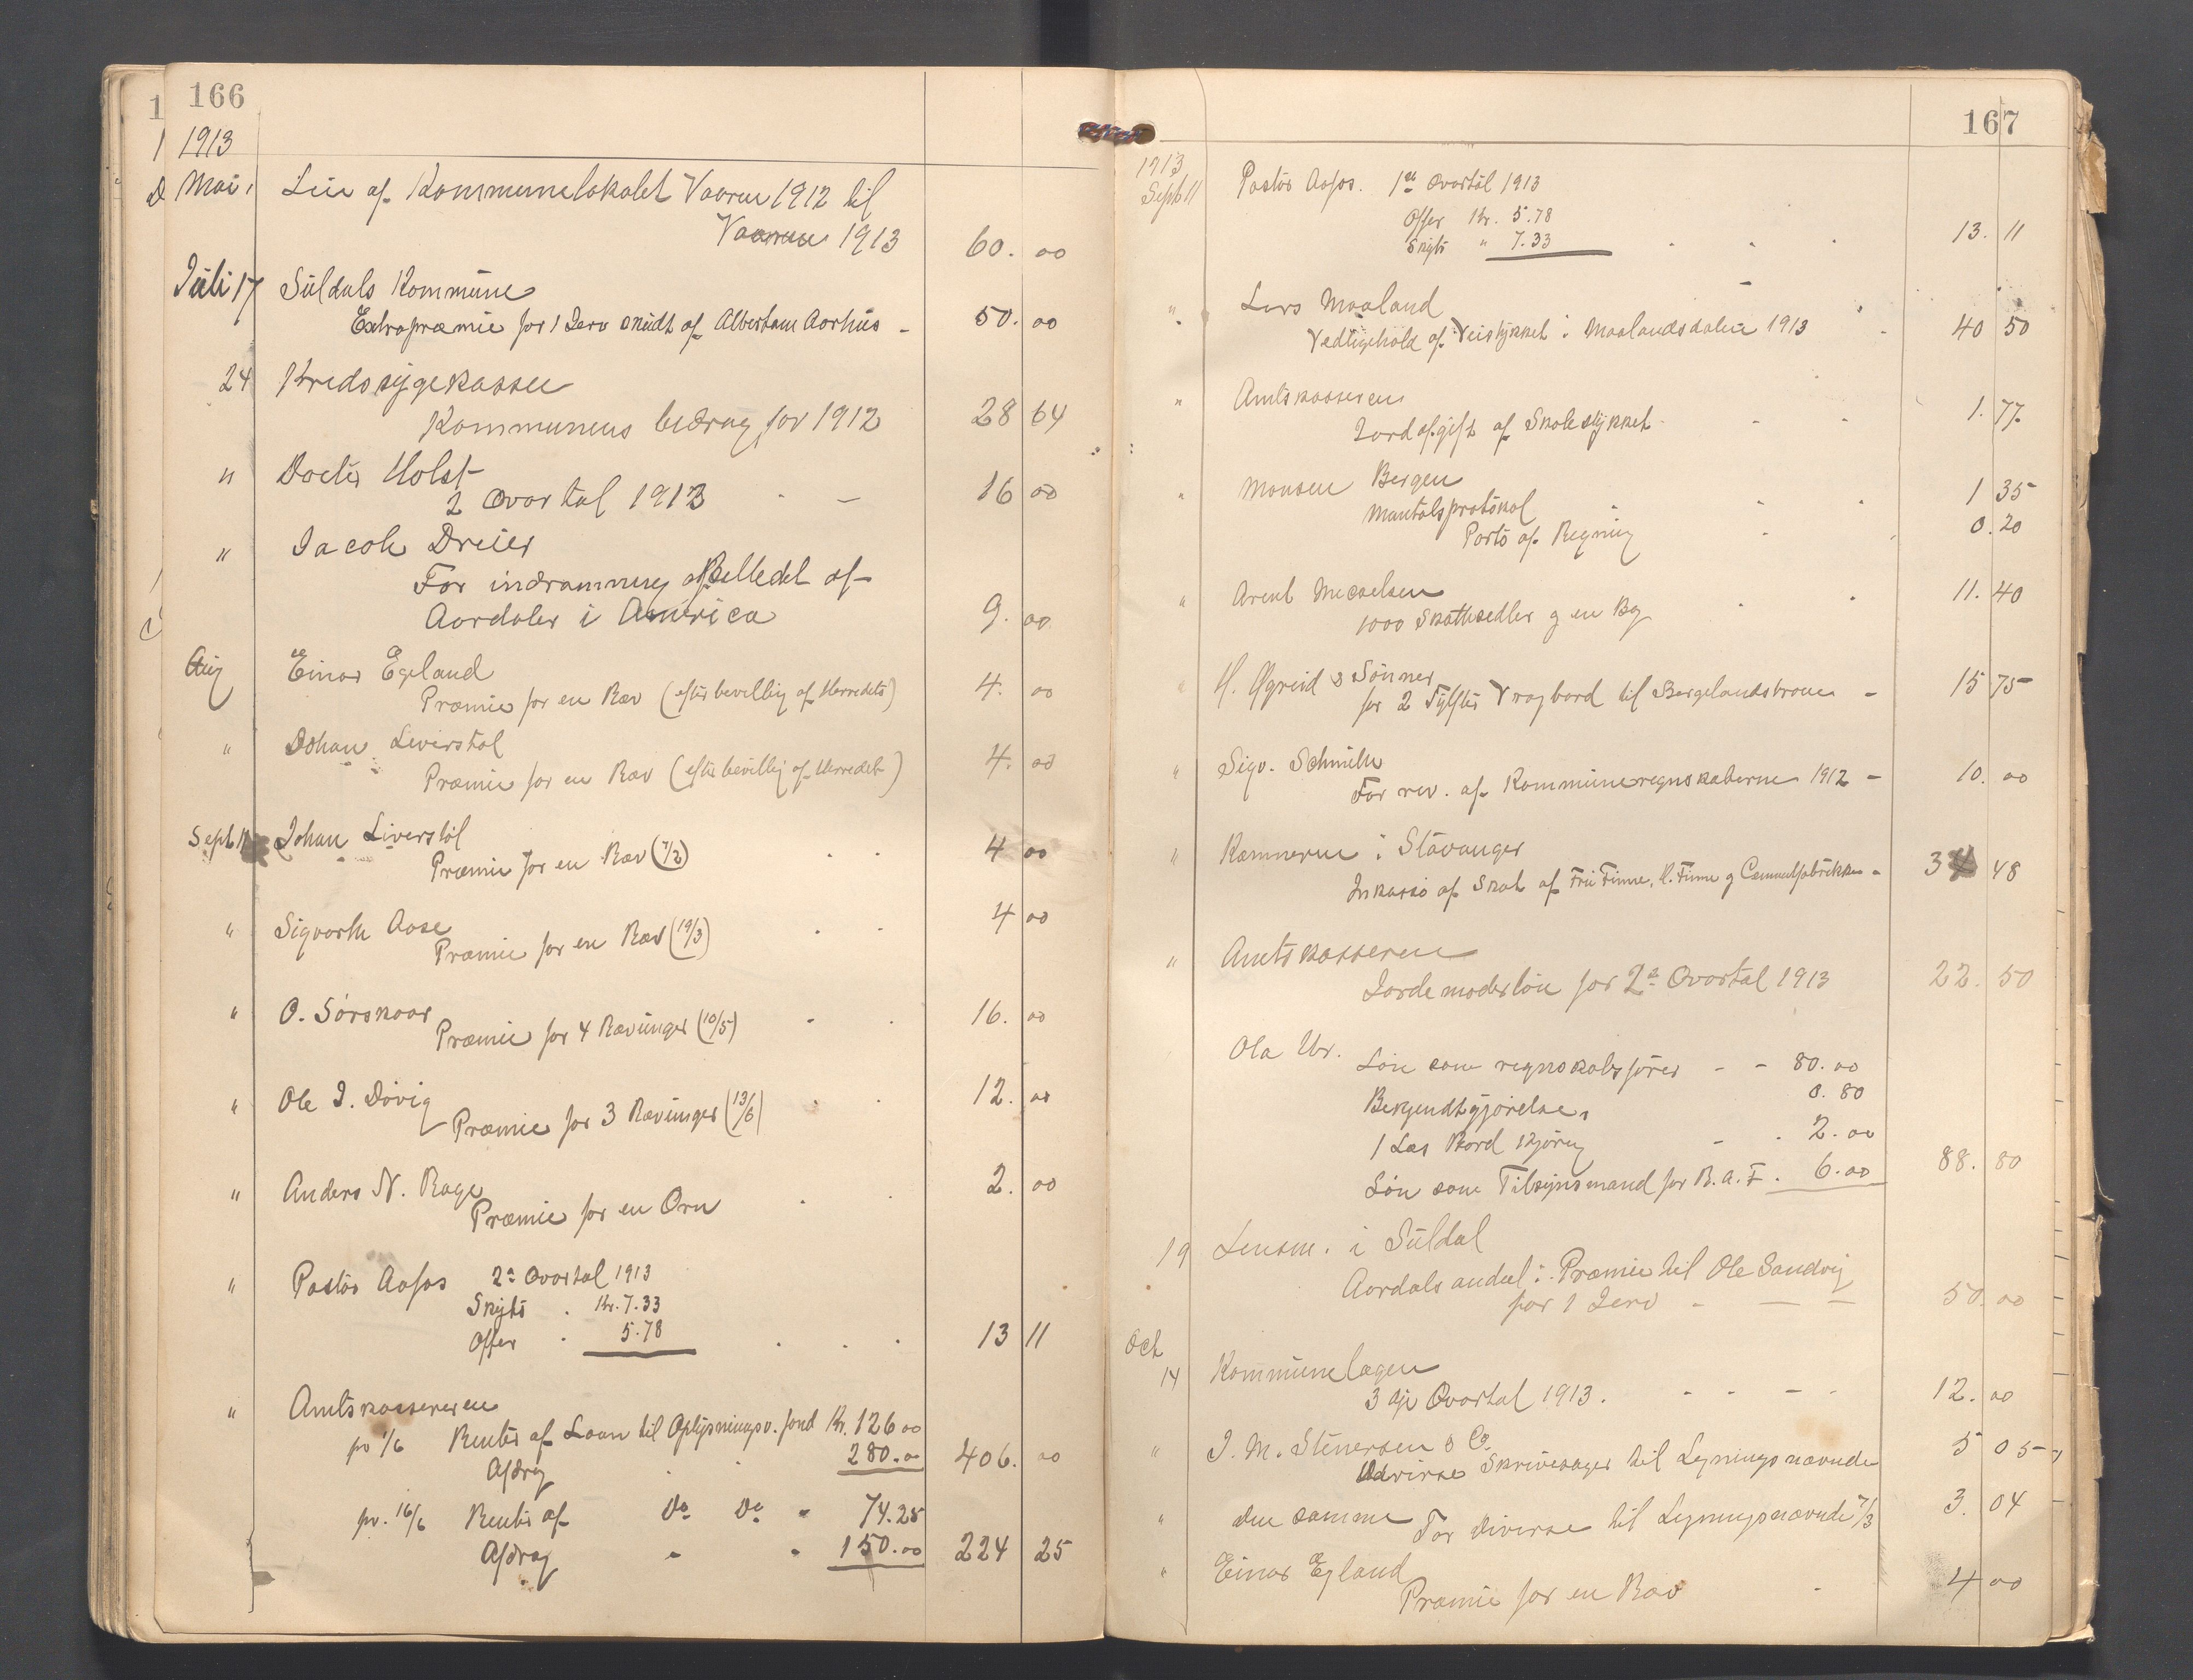 166
1913
Mai 1 Leie af Kommunelokalet Vaaren 1912 til
Vaaren 1913 60. 00
Juli 17 Suldals Kommune
Extrapræmie for 1 Jerv skudt af Albert Aarhus - 50. 00
24 Kredssygekassen
Kommunens bidrag for 1912 28 64
" Doctor Holst
2 Qvartal 1913 - - 16 00
" Jacob Dreier
For indramning af Billedet af
Aardøler i America 9. 00
Aug Einar Egeland
Præmie for en Ræv (efter bevillig af Herredet) 4. 00
" Johan Liverstøl
Præmie for en Ræv (efter bevillig af Herredet) 4. 00
Sept 11 Johan Liverstøl
Præmie for en Ræv (7/2) 4 00
" Sigvarth Aase
Præmie for en Ræv (19/3) 4 00
" O. Sørskaar
Præmie for 4 Rævunger (10/5) 16. 00
" Ole J. Døvig
Præmie for 3 Rævunger (13/6) 12. 00
" Anders N. Rage
Præmie for en Ørn 2. 00
" Pastor Aafos 2. Qvartal 1913
Skyts . Kr. 7.33
Offer . 5.78 13 11
" Amtskassereren
pr 1/6 Renter af Laan til Oplysningsv. fond Kr. 126 00
Afdrag 280.00 406. 00
pr. 16/6 Renter af Do Do - 74.25
Afdrag - - 150.00 224 25
167
1913
Sept 11 Pastor Aafos. 1ste Qvartal 1913
Offer Kr. 5.78
Skyts " 7.33 13. 11
" Lars Maaland
Vedligehold af Veistykket i Maalandsdalen 1913 - 40 50
" Amtskasseren
Jordafgift af Skolestykket 1. 77
" Monsen Bergen
Mantalsprotokol 1 35
Porto af Regning 0. 20
" Arent Meoselsen
1000 Skattesedler g en Bog 11. 40
" H. Qgreid & Sønner
for 2 Tylfter Vragbord til Bergelandsbroen - 15 75
" Sigv. Schmith
For rev. af Kommuneregnskaberne 1912 - 10. 00
" Kæmneren i Stavanger
Inkasso af Skat af Fru Finne, H. Finne g Cementfabrikken - 34 48
" Amtskasseren
Jordemoderløn for 2. Qvartal 1913 22. 50
Ola Ur.
Løn som regnskabsfører - - 80.00
Bekjendtgjørelser 0.80
1 Læs Bord kjøring - . 2.00
Løn som Tilsynsmand for B.A.F. 6.00 88. 80
19 Lensm. i Suldal
Aardals andeel i Præmie til Ole Sandvig
for 1 Jerv - - - 50. 00
Oct
14 Kommunelægen
3dje Qvartal 1913. - - - - 12. 00
" J. M. Stenersen & Co
Diverse Skrivesager til Ligningsnævnde 5 05
" den samme
For diverse til Ligningsnævnde 7/3 3. 04
" Einar Egland
Præmie for en Ræv - 4 00